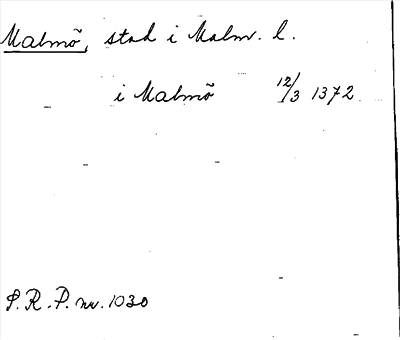 Malmö, stad i Malm. l.
i Malmö 12/3 1372
S.R.P. nr. 1030